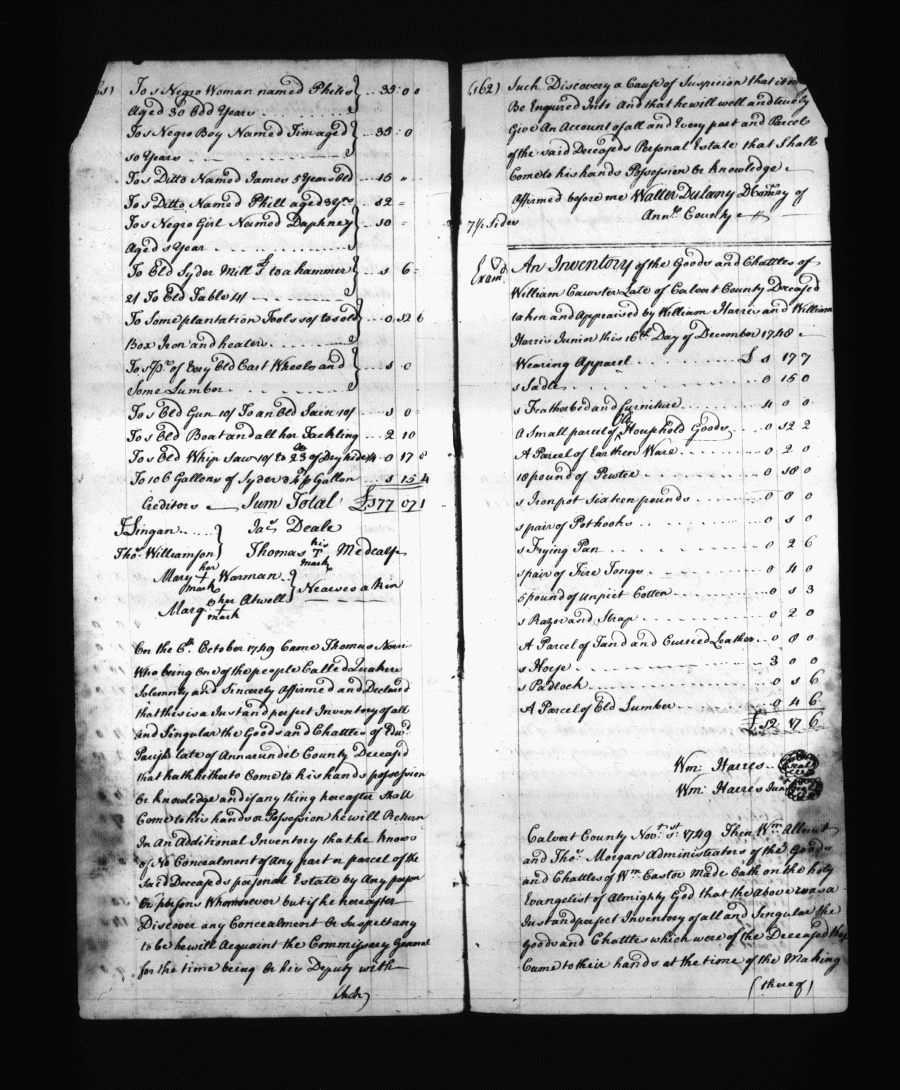 To 1 Negro Woman named Philis .. 35 : 0 0
Aged 30 Odd Years
To 1 Negro Boy Named Tim aged ... 35 : 0
10 Years
To 1 Ditto Named James 5 Years Old .. 15 "
To 1 Ditto Named Phill aged 3 Yrs .. 12 =
To 1 Negro Girl Named Daphney .. 10 =
Aged 1 Year
To Old Syder Mill & to a hammer .. 1 6 =
21 To Old Table 4/
To Some plantation Tools 10/ to 1 old .. 0 12 6
Box Iron and heaters
To 1 Pr. of Very Old Cart Wheels and .. 1 0
Some Lumber
To 1 Old Gun 10/ To an Old Sain 10/ ... 1 0 =
To 1 Old Boat and all her Tackling ... 2 10
To 1 Old Whip Saw 10/ to 23 of Dry hide 4. 0 17 8
To 106 Gallons of Syder @ 4d p Gallon .. 1 15 4
Creditors Sum Total £177 07 1
Jas. Deale
Thos. Williamson Thomas his T mark Metcalf
Mary her + mark Warman
Marg. her + mark Atwell Nearest a Kin
On the 6th. October 1749 Came Thomas Norris
Who being One of the people Called Quakers
Solemnly and Sincerely Affirmed and Declared
that this is a Just and perfect Inventory of all
and Singular the Goods and Chattles of
Parish late of Annarundel County Deceased
that hath hitherto Come to his hands possession
or knowledge and if any thing hereafter Shall
Come to his hands or Possession he will Return
In An Additional Inventory that he knows
of No Concealment of Any part or parcel of the
Said Deceaseds personal Estate by Any person
Or persons Whomsoever but if he hereafter
Discover any Concealment Or Suspect any
to be he will Acquaint the Commissary General
for the time being Or his Deputy with
Such
(162) Such Discovery a Cause of Suspicion that it may
Be Enquired Into And that he will well and truely
Give An Account of all and Every part and Parcel
of the said Deceaseds Personal Estate that Shall
Come to his hands Possession or knowledge
Affirmed before me Walter Dulany D Comry of
Annl. County
7½ Sides
Examd. An Inventory of the Goods and Chattles of
William Cawster Late of Calvert County Deceased
taken and Appraised by William Harris and William
Harris Junior this 16th Day of December 1748
Wearing Apparel ... £ 1 17 7
1 Sadle ... 0 15 0
1 Featherbed and furniture ... 4 0 0
A Small parcel of Old Household Goods .. 0 12 2
A Parcel of Earthen Ware ... 0 2 0
18 pound of Pewter ... 0 18 0
1 Iron pot Sixteen pounds ... 0 8 0
1 pair of Pothooks ... 0 1 0
1 Frying Pan ... 0 2 6
1 pair of Fire Tongs ... 0 4 0
5 pound of Unpict Cotton ... 0 1 3
1 Razor and Strap ... 0 2 0
A Parcel of Tand and Curried Leather .. 0 8 0
1 Horse ... 3 0 0
1 Padlock ... 0 1 6
A Parcel of Old Lumber ... 0 4 6
£12 17 6
Wm. Harres
Wm. Harres Junr.
Calvert County Novr. 1st. 1749 Then Wm. Allnutt
and Thos. Morgan Administrators of the Goods
and Chattles of Wm. Castor Made Oath on the holy
Evangelist of Almighty God that the Above was a
Just and perfect Inventory of all and Singular the
Goods and Chattles which were of the Deceased they
Came to their hands at the time of the Making
(thereof)